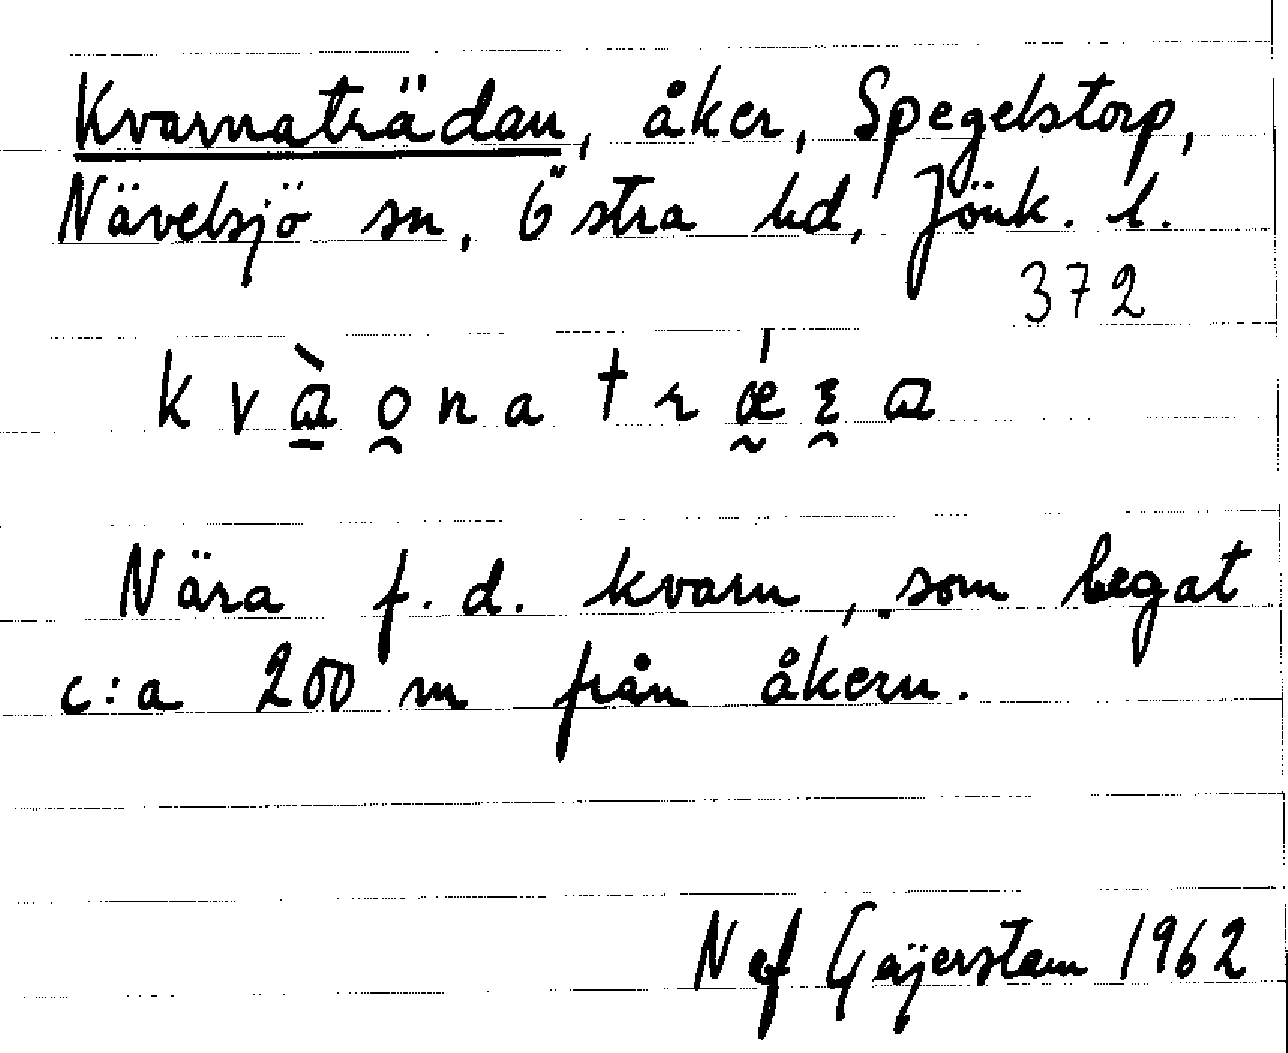 Kvarnaträdan, åker, Spegelstorp,
Nävelsjö sn, Östra hd, Jönk. l.
372
Nära f.d. kvarn, som legat
c:a 200 m från åkern.
N af Geijerstam 1962